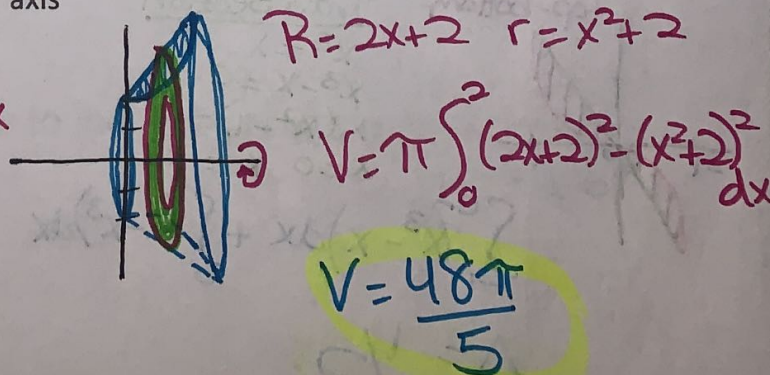 axis
R=2x+2 r=x²+2
x
V=π∫₀²(2x+2)²-(x²+2)²dx
V=48π/5